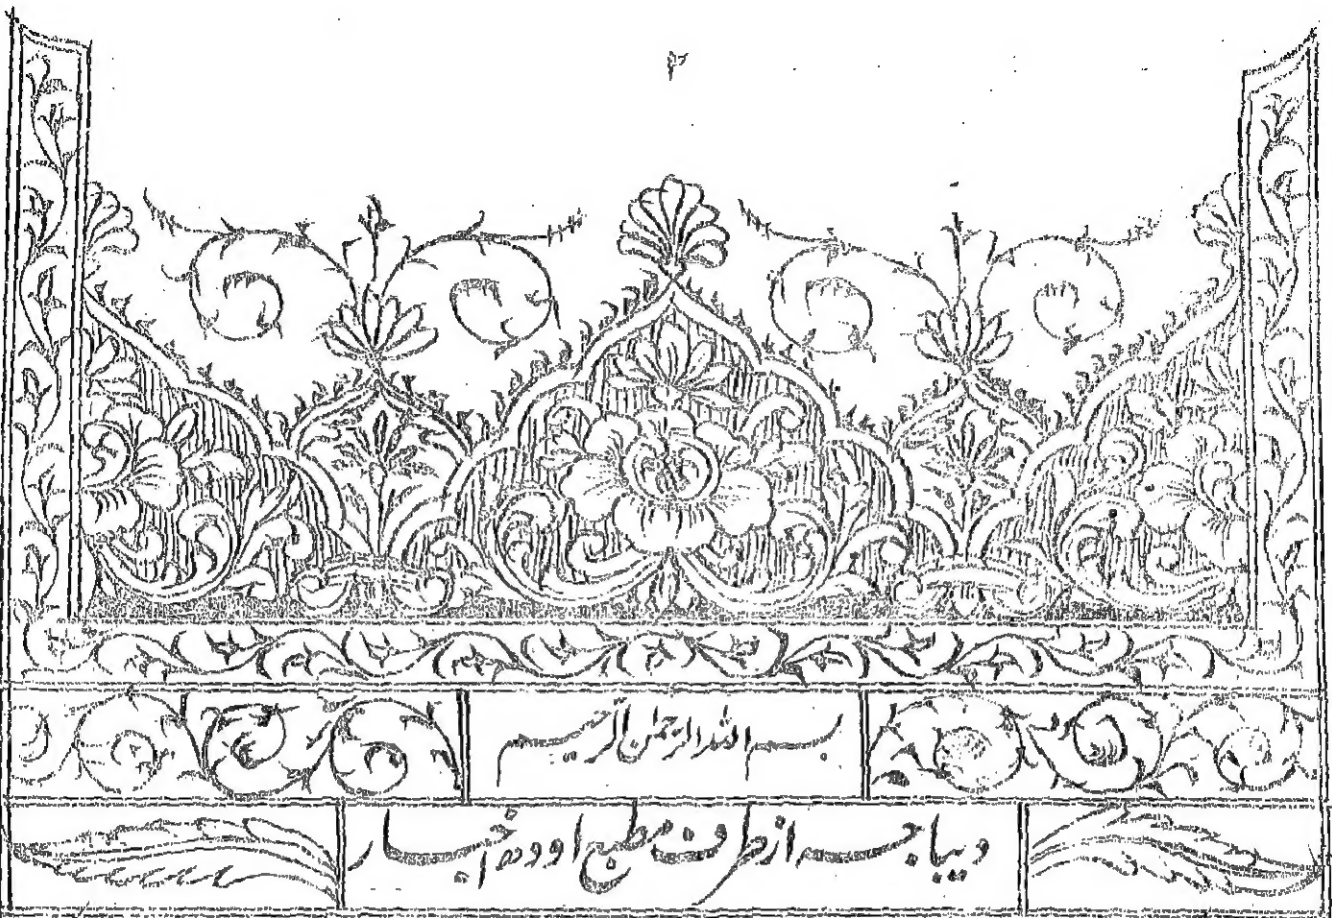 بسم الله الرحمن الرحيم
دیباجہ از طرف مطبع اودہ اخبار